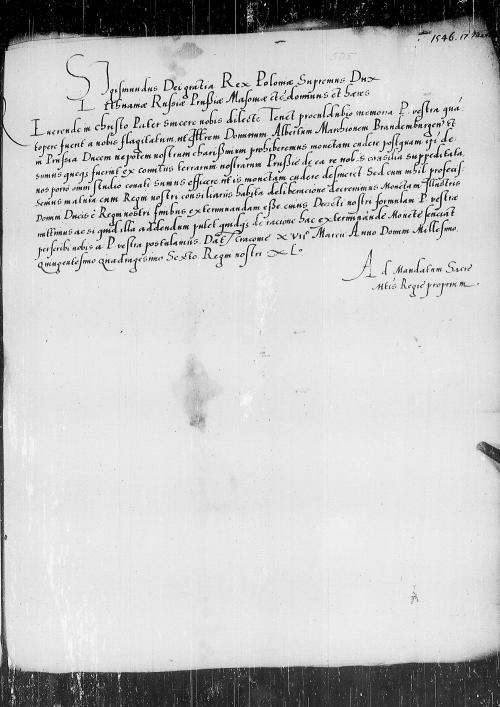 1546. 17 Mar
Sigismundus Dei gratia Rex Poloniæ Supremus Dux
Lithuaniæ Russiæ Prussiæ Masoviæ etc dominus et hæres
Reverende in Christo Pater sincere nobis dilecte Tenet proculdubio memoria P. vestra quã:
topere fuerit a nobis flagitatum, ut Illrem Dominum Albertum Marchionem Brandenburgen̄ et
in Prussia Ducem nepotem nostrum charissimum prohiberemus monetam cudere postquam ipi de:
sumus quoqȝ fuerint ex comitiis terrarum nostrarum Prussiæ de ea re nobis consilia suppeditata,
nos porro omni studio conati sumus efficere ut is monetam cudere desineret Sed cum nihil profecis:
semus matura cum Regni nostri consiliariis habita deliberacione decrevimus Monetam Illustris
Domini Ducis e Regni nostri finibus exterminandam esse cuius Decreti nostri formulam P vestræ
mittimus ac si quid illa addendum putet quidqȝ de racione hac exterminandæ Monetæ senciat
perscribi nobis a P. vestra postulamus Dat Cracoviæ XVII Marcii Anno Domini Millesimo
Quingentesimo Quadragesimo Sexto Regni nostri XL
Ad Mandatum Sacræ
Mtis Regiæ proprium